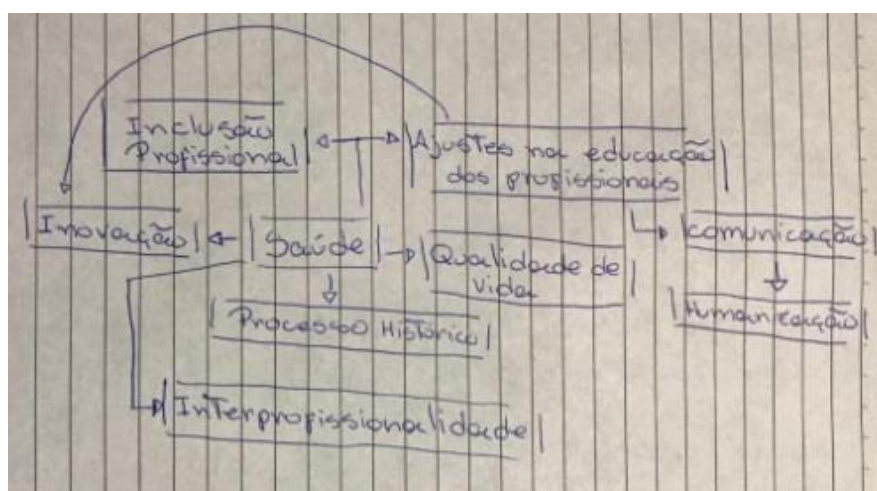 Inclusão
Profissional
Ajustes na educação
dos profissionais
Inovação
Saúde
Qualidade de
vida
Comunicação
Processo Histórico
Humanização
Interprofissionalidade